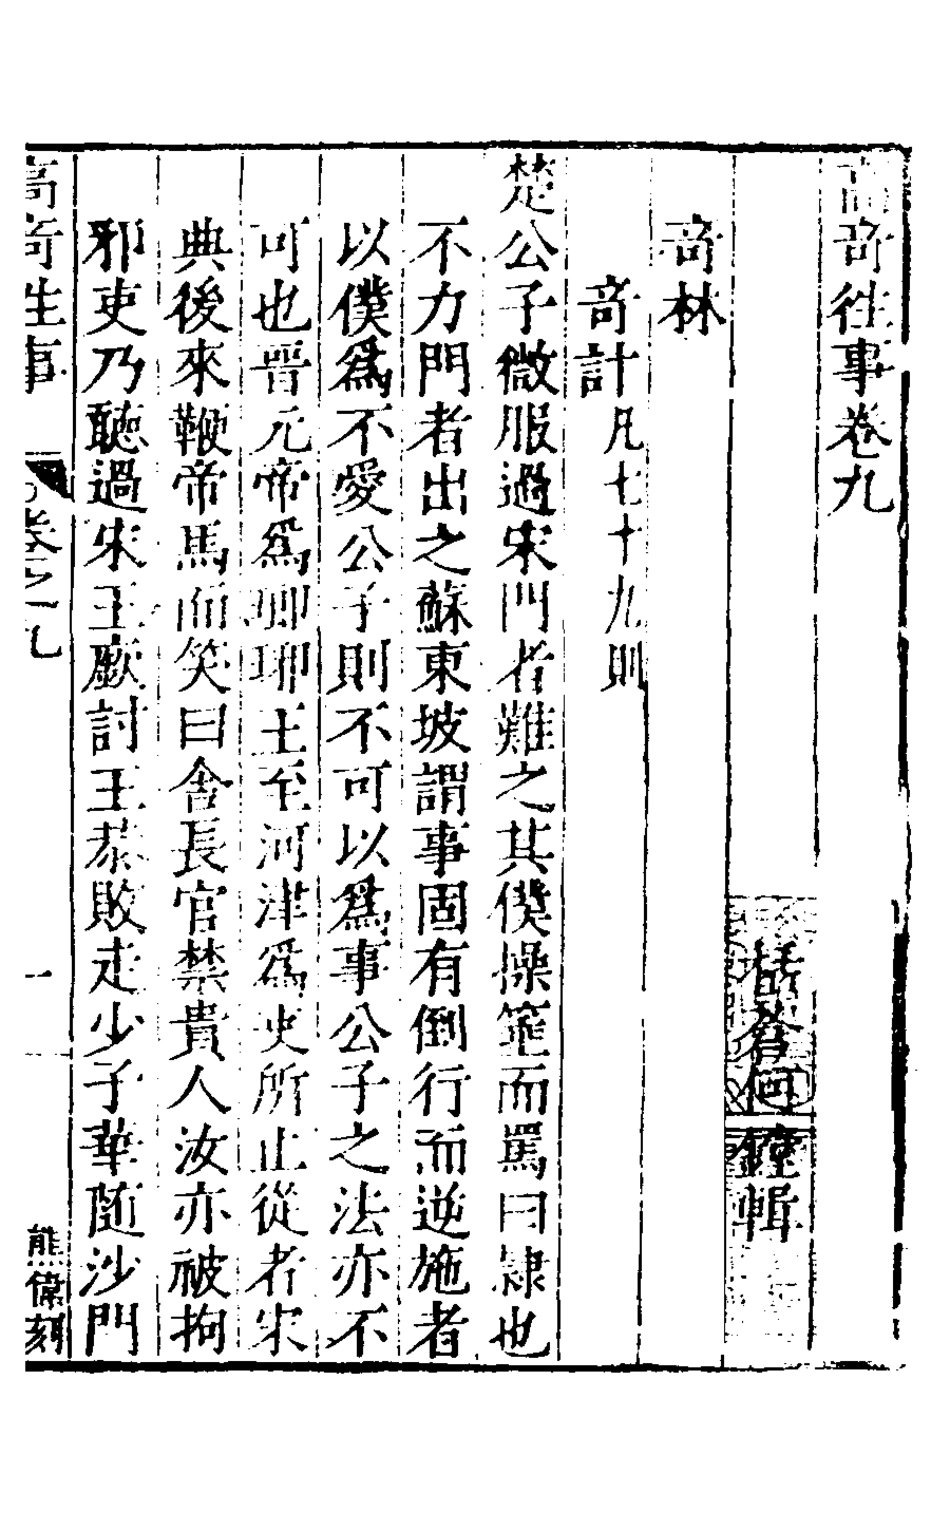 高竒徃事卷九
栝蒼何鏜輯
竒林
竒計凡七十九則
楚公子微服過宋門者難之其僕操箠而罵曰隷也
不力門者出之蘇東坡謂事固有倒行而逆施者
以僕爲不愛公子則不可以爲事公子之法亦不
可也晋元帝爲瑯琊王至河津爲吏所止從者宋
典後來鞭帝馬而笑曰舍長官禁貴人汝亦被拘
邪吏乃聽過宋王廞討王恭敗走少子華随沙門
高竒徃事
卷之九
一
熊偉刻